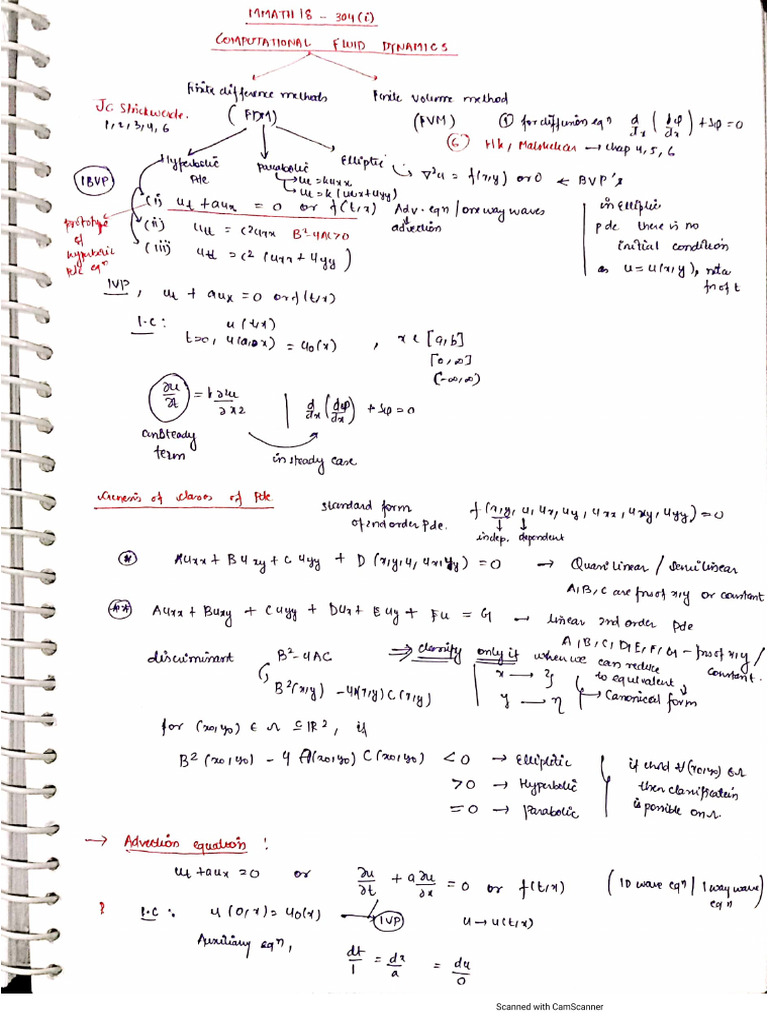 MMATH18 - 304(i)
COMPUTATIONAL FLUID DYNAMICS
Finite difference methods
(FDM)
Finite volume method
(FVM) ① for diffusion eqⁿ d/dx (dφ/dx) + Sφ = 0
JC Strickwerda.
1, 2, 3, 4, 6
⑥ HK, Malalasekera → chap 4, 5, 6
IBVP
Hyperbolic Pde
Parabolic
→ ut = kuxx
→ ut = k(uxx+uyy)
Elliptic
↳ ∇²u = f(x,y) or 0 ← BVP's
(i) ut + aux = 0 or f(t,x) Adv. eqⁿ / one way waves
advection
prototype of hyperbolic pde eqⁿ
(ii) utt = c²uxx B²-4AC>0
(iii) utt = c² (uxx + uyy)
in Elliptic
pde there is no
initial condition
as u = u(x,y), not a
fn of t
IVP, ut + aux = 0 or f(t,x)
I.C: u(t,x)
t=0, = u0(x) , x ∈ [a,b]
[0,∞]
(-∞,∞)
∂u/∂t = k ∂²u/∂x2 | d/dx (dφ/dx) + Sφ = 0
unsteady term
in steady case
Genesis of classes of Pde.
standard form
of 2nd order Pde.
f(x,y, u, ux, uy, uxx, uxy, uyy) = 0
indep. dependent
(*) Auxx + Buxy + Cuyy + D(x,y,u,ux,uy) = 0 → Quasilinear / Semilinear
A,B,C are fn of x,y or constant
(**) Auxx + Buxy + Cuyy + Dux + Euy + Fu = G → linear 2nd order pde
A,B,C,D,E,F,G - fn of x,y / constant.
discriminant B²-4AC
B²(x,y) - 4A(x,y)C(x,y)
⇒ classify only if when we can reduce
x → ξ
y → η
to equivalent
Canonical form
for (x0,y0) ∈ Ω ⊆ IR², if
B²(x0,y0) - 4 A(x0,y0) C(x0,y0) < 0 → Elliptic
> 0 → Hyperbolic
= 0 → Parabolic
if ∀(x0,y0) ∈ Ω
then classification
is possible on Ω.
→ Advection equation :
ut + aux = 0 or ∂u/∂t + a ∂u/∂x = 0 or f(t,x) (1D wave eqⁿ / 1 way wave eqⁿ)
I.C : u(0,x) = u0(x) → IVP u → u(t,x)
Auxiliary eqⁿ, dt/1 = dx/a = du/0
Scanned with CamScanner